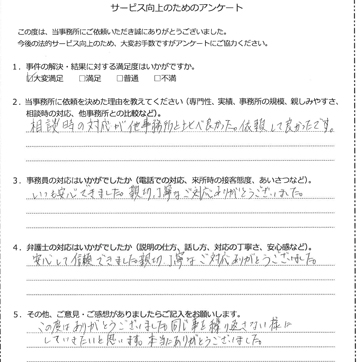 サービス向上のためのアンケート
この度は、当事務所にご依頼いただき誠にありがとうございました。
今後の法的サービス向上のため、大変お手数ですがアンケートにご協力ください。
1．事件の解決・結果に対する満足度はいかがですか。
☑大変満足 □満足 □普通 □不満
2．当事務所に依頼を決めた理由を教えてください（専門性、実績、事務所の規模、親しみやすさ、
相談時の対応、他事務所との比較など）。
相談時の対応が他事務所と比べ良かった。依頼して良かったです。
3．事務員の対応はいかがでしたか（電話での対応、来所時の接客態度、あいさつなど）。
いつも安心できました。親切、丁寧なご対応ありがとうございました。
4．弁護士の対応はいかがでしたか（説明の仕方、話し方、対応の丁寧さ、安心感など）。
安心して信頼できました親切、丁寧なご対応ありがとうございました。
5．その他、ご意見・ご感想がありましたらご記入をお願いします。
この度はありがとうございました同じ事を繰り返さない様に
していきたいと思います。本当にありがとうございました。